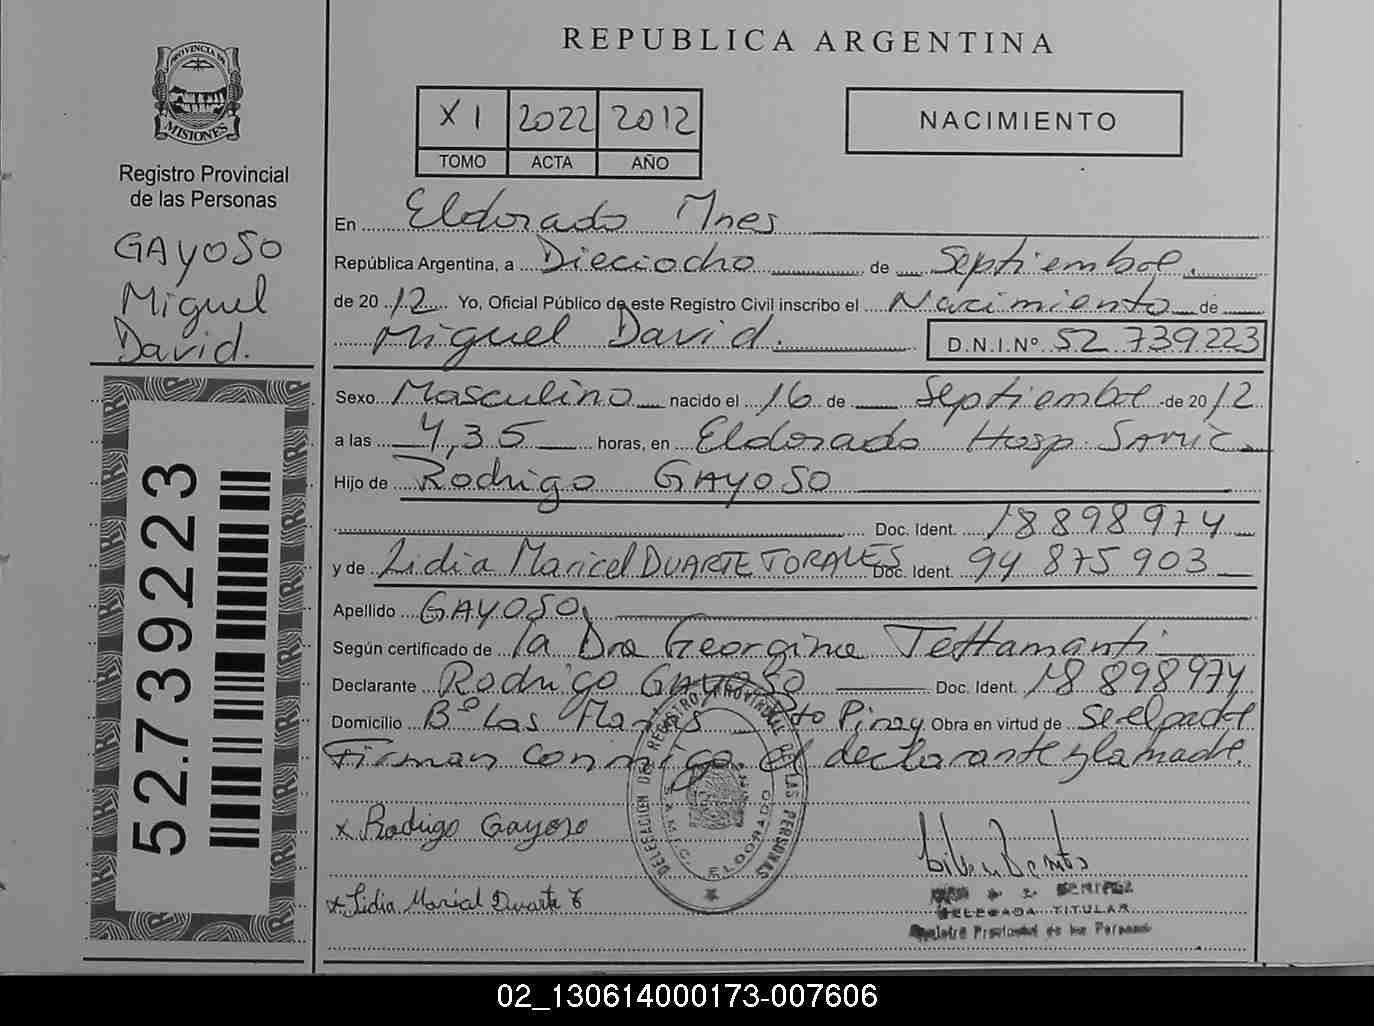 REPUBLICA ARGENTINA
PROVINCIA DE
MISIONES
Registro Provincial
de las Personas
GAYOSO
Miguel
David.
52.739.223
XI 2022 2012
TOMO ACTA AÑO
NACIMIENTO
En Eldorado Mnes
República Argentina, a Dieciocho de Septiembre.
de 20 12 Yo, Oficial Público de este Registro Civil inscribo el Nacimiento de
Miguel David. D.N.I.Nº 52 739223
Sexo Masculino nacido el 16 de Septiembre de 20 12
a las 4,35 horas, en Eldorado Hosp. SAMIC
Hijo de Rodrigo GAYOSO
Doc. Ident. 18898974
y de Lidia Maricel DUARTE TORALES Doc. Ident. 94 875903
Apellido GAYOSO
Según certificado de la Dra Georgina Tettamanti
Declarante Rodrigo GAYOSO Doc. Ident. 18 898974
Domicilio Bº Las Pto Piray Obra en virtud de ser el padre
Firman conmigo el declarante y la madre.
DELEGACION DEL REGISTRO PROVINCIAL DE LAS PERSONAS
S.A.M.I.C. ELDORADO
x Rodrigo Gayoso
x Lidia Maricel Duarte T
BENITEZ
DELEGADA TITULAR
Registro Provincial de las Personas
02_130614000173-007606